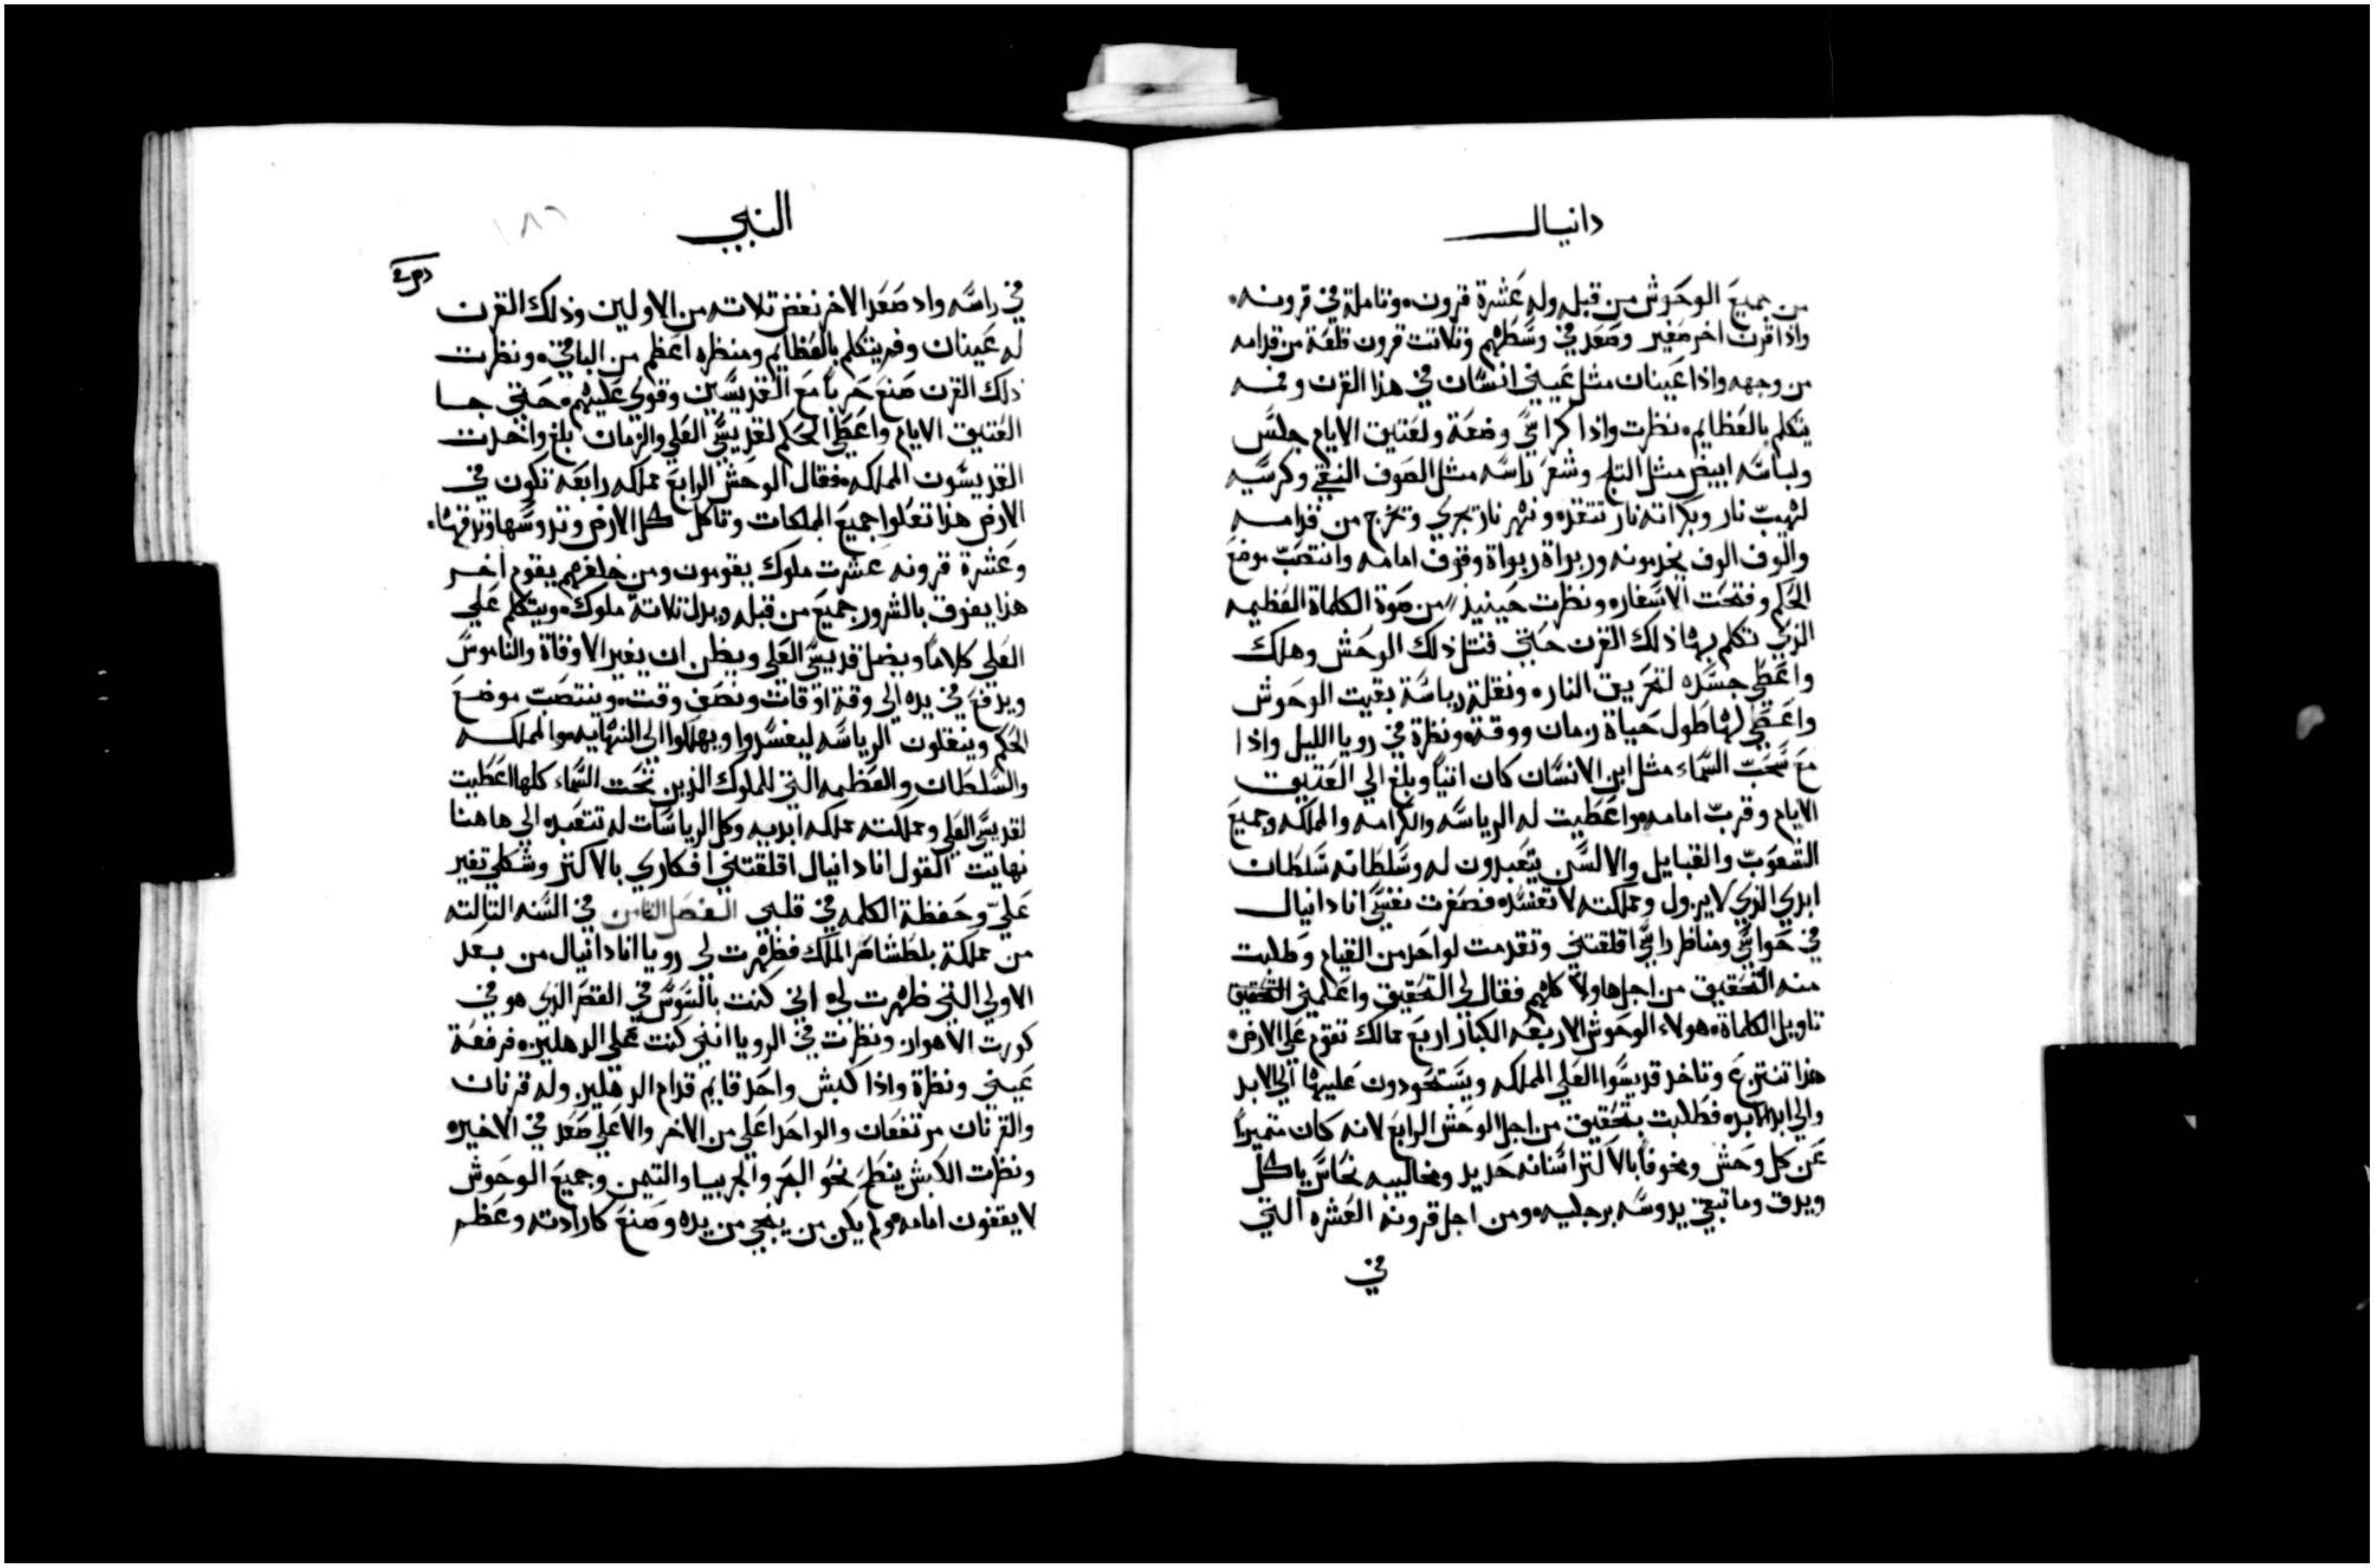 دانيال
من جميع الوحوش من قبله وله عشرة قرون، وتاملة في قرونه،
واذا قرن اخر صغير وصعد في وسطهم وتلاتت قرون قلعة من قدامه
من وجهه واذا عينان مثل عيني انسان في هذا القرن وفمه
يتكلم بالعظايم، نظرت واذا كراسي وضعة ولعتيق الايام جلس
ولباسه ابيض مثل التلج وشعر راسه مثل الصوف النقي وكرسيه
لهيب نار وبكراته نار تتقده ونهر نار تجري وتخرج من قدامه
والوف الوف يخدمونه وربواة ربواة وقوف امامه وانتصب موضع
الحكم وفتحت الاسفاره ونظرت حينيذ من صوة الكلماة العظيمه
الذي تكلم بها ذلك القرن حتي قتل ذلك الوحش وهلك
واعطي جسده لتحريق الناره ونقلة رياسة بقيت الوحوش
واعطي لها طول حياة زمان ووقته ونظرة في رويا الليل واذا
مع سحب السماء مثل ابن الانسان كان اتيا وبلغ الي العتيق
الايام وقرب امامه واعطيت له الرياسه والكرامه والمملكه وجميع
الشعوب والقبايل والالسن يتعبدون له وسلطانه سلطان
ابدي الذي لا يزول ومملكته لا تفسده فصغرت نفسي انا دانيال
في حواسي ومناظر راسي اقلقتني وتقدمت لواحد من القيام وطلبت
منه التحقيق من اجل هاولا كلهم فقال لي التحقيق واعلمني التحقيق
تاويل الكلماة، هولاء الوحوش الاربعه الكبار اربع ممالك تقوم علي الارض
هذا تنتزع وتاخد قديسوا العلي المملكه ويستحودون عليها الي الابد
والي ابد الابده فطلبت بتحقيق من اجل الوحش الرابع لانه كان متميزا
عن كل وحش ومخوفا بالاكتر اسنانه حديد ومخاليبه نحاس ياكل
ويدق وما تبقي يدوسه برجليه، ومن اجل قرونه العشره التي
في
النبي
١٨٦
في راسه واد صعد الاخر نفض تلاته من الاولين وذلك القرن
له عينان وفم يتكلم بالعظايم ومنظره اعظم من الباقي، ونظرت
ذلك القرن صنع حربا مع القديسين وقوي عليهم، حتي جا
العتيق الايام واعطي الحكم لقديسي العلي والزمان بلغ واخدت
القديسون المملكه، فقال الوحش الرابع مملكه رابعه تكون في
الارض هذا تعلوا جميع المملكات وتاكل كل الارض وتدوسها وتدقها،
وعشرة قرونه عشرت ملوك يقومون ومن خلفهم يقوم اخر
هذا يفوق بالشرور جميع من قبله ويدل تلاتة ملوك، ويتكلم علي
العلي كلاما ويضل قديسي العلي ويظن ان يغير الاوقاة والناموس
ويدفع في يده الي وقة اوقات ونصف وقت، وينتصب موضع
الحكم وينقلون الرياسه ليفسدوا ويهلكوا الي النهايه، والمملكه
والسلطان والعظمه التي للملوك الذين تحت السماء كلها اعطيت
لقديسي العلي ومملكته مملكه ابديه وكل الرياسات له تتعبده الي هاهنا
نهايت القول انا دانيال اقلقتني افكاري بالاكتر وشكلي تغير
علي وحفظة الكلمه في قلبي الفصل الثامن في السنه التالته
من مملكة بلطشاصر الملك فظهرت لي رويا انا دانيال من بعد
الاولي التي ظهرت لي، اني كنت بالسوس في القصر الذي هو في
كورت الاهوان ونظرت في الرويا انني كنت علي الدهليزه فرفعة
عيني ونظرة واذا كبش واحد قايم قدام الدهليز وله قرنان
والقرنان مرتفعان والواحد اعلي من الاخر والاعلي صعد في الاخيره
ونظرت الكبش ينطح نحو البحر والجربيا والتيمن وجميع الوحوش
لا يقفون امامه ولم يكن من ينجي من يده وصنع كارادته وعظم